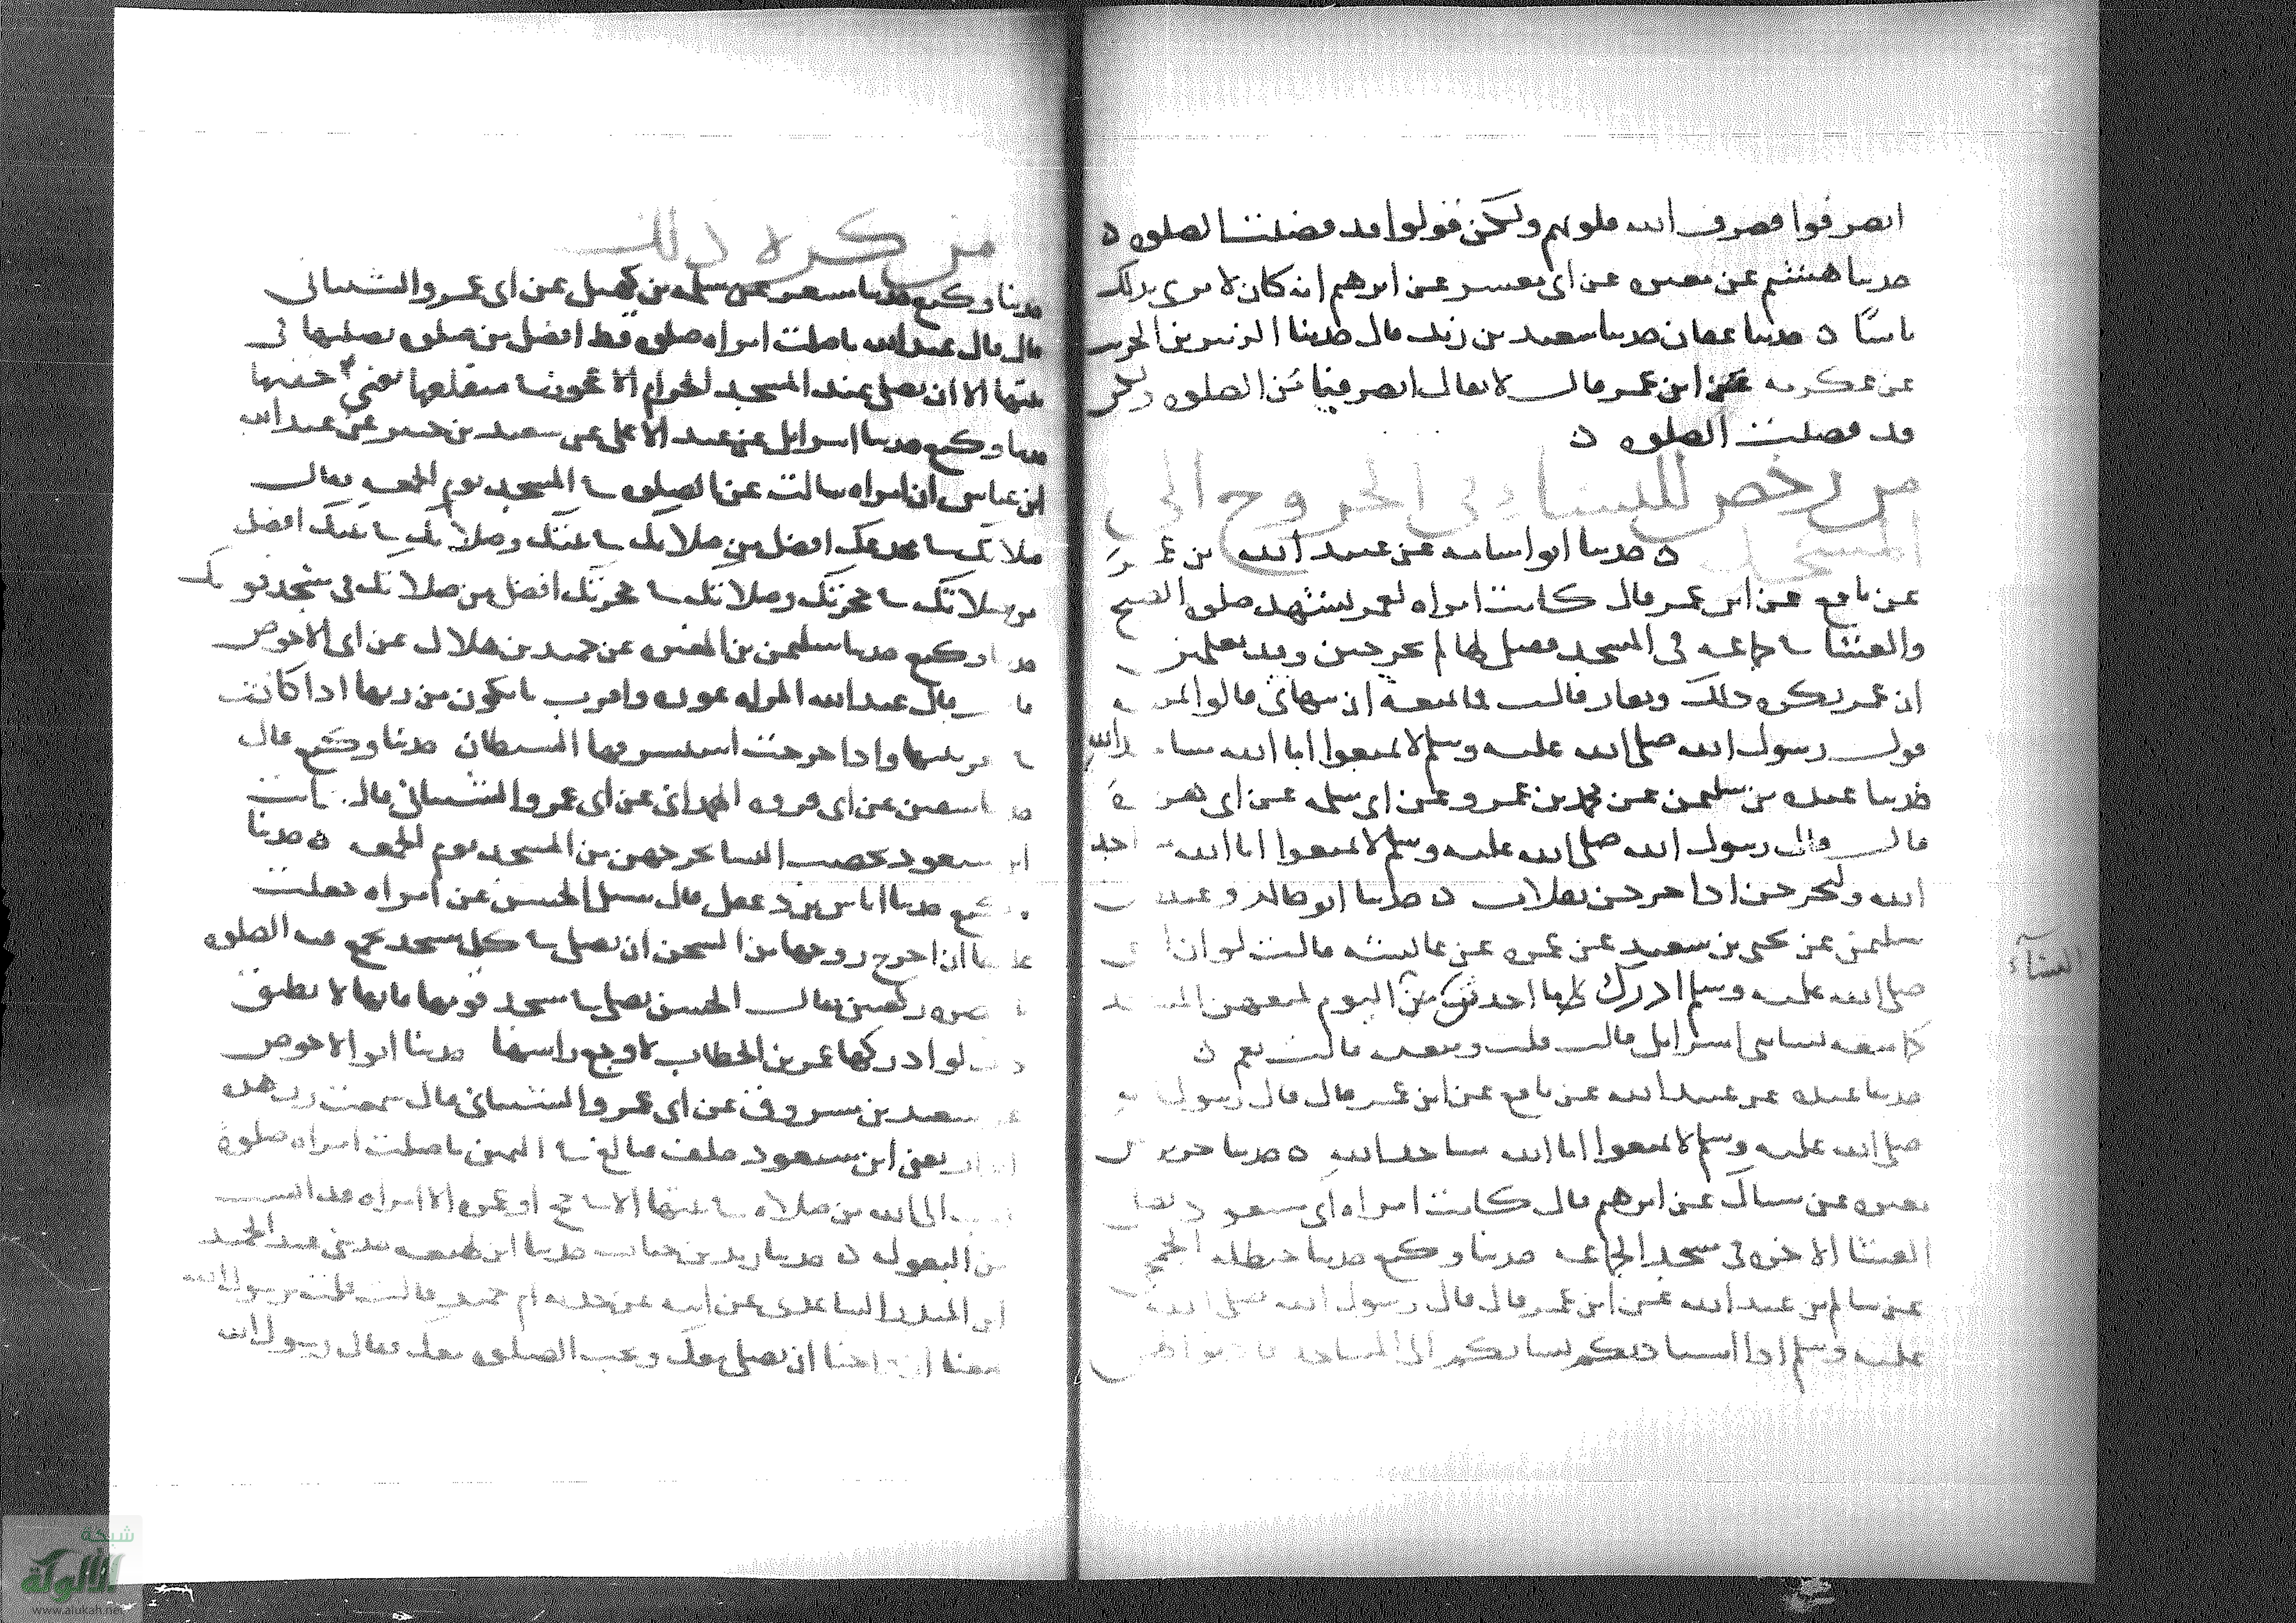 انصرفوا فصرف الله قلوبهم ولكن قولوا قد قضيت الصلوة ه
حدثنا هشيم عن مغيره عن ابى معشر عن ابرهيم انه كان لا يرى بذلك
باسًا ه حدثنا عفان حدثنا سعيد بن زيد قال حدثنا الزبير بن الخريت
عن عكرمه عن ابن عمر قال لا يقال انصرفنا من الصلوه ولكن
قد قضيت الصلوه ه
من رخص للنساء في الخروج الى
المسجد ه حدثنا ابو اسامه عن عبيد الله بن عمر
عن نافع عن ابن عمر قال كانت امراه لعمر تشهد صلوه الصبح
والعشا فى جماعه فى المسجد فقيل لها لم تخرجين وقد تعلمين
ان عمر يكره ذلك ويغار قالت فما يمنعه ان ينهانى قالوا يمنعه
قول رسول الله صلى الله عليه وسلم لا تمنعوا اما الله مساجد الله
حدثنا عبده بن سليمن عن محمد بن عمرو عن ابى سلمه عن ابى هريرة
قال قال رسول الله صلى الله عليه وسلم لا تمنعوا اما الله مساجد
الله وليخرجن اذا خرجن تفلات ه حدثنا ابو خالد وعبده بن
سليمن عن يحيى بن سعيد عن عمره عن عائشه قالت لو ان النبى
صلى الله عليه وسلم ادرك ما احدثن من اليوم لمنعهن المسجد
كما منعه نسا بنى اسرايل قالت قلت ومنعه قالت نعم ه
حدثنا عبده عن عبيد الله عن نافع عن ابن عمر قال قال رسول الله
صلى الله عليه وسلم لا تمنعوا اما الله مساجد الله ه حدثنا جرير عن
مغيره عن سماك عن ابرهيم قال كانت امراه ابى مسعود تصلى
العشا الاخره فى مسجد الجماعه حدثنا وكيع حدثنا حنظله الجمحى
عن سالم بن عبد الله عن ابن عمر قال قال رسول الله صلى الله
عليه وسلم اذا استاذنكم نساءكم الى المساجد فاذنوا لهن
النساء
من كره ذلك
حدثنا وكيع حدثنا مسعر عن سلمه بن كهيل عن ابى عمرو الشيبانى
قال قال عبد الله ما صلت امراه صلوه قط افضل من صلوه تصليها فى
بيتها الا ان تصلى عند المسجد الحرام الا عجوز فى منقلها يعنى خفيها
حدثنا وكيع حدثنا اسرايل عن عبد الاعلى عن سعيد بن جبير عن عبد الله
ابن عباس ان امراه سالت عن الصلوه فى المسجد يوم الجمعه فقال
صلاتك فى مخدعك افضل من صلاتك فى بيتك وصلاتك فى بيتك افضل
من صلاتك فى حجرتك وصلاتك فى حجرتك افضل من صلاتك فى مسجد قومك
حدثنا وكيع حدثنا سليمن بن المغيره عن حميد بن هلال عن ابى الاحوص
قال قال عبد الله المراه عوره واقرب ما تكون من ربها اذا كانت
فى قعر بيتها واذا خرجت استشرفها الشيطان حدثنا وكيع قال
حدثنا سفين عن ابى فروه الهمدانى عن ابى عمرو الشيبانى قال رايت
ابن مسعود يحصب النسا يخرجهن من المسجد يوم الجمعه ه حدثنا
وكيع حدثنا اياس بن دغفل قال سئل الحسن عن امراه جعلت
عليها ان اخرج زوجها من السجن ان تصلى فى كل مسجد تجمع فيه الصلوه
بالبصره ركعتين فقال الحسن تصلى فى مسجد قومها فانها لا تطيق
ذلك لو ادركها عمر بن الخطاب لاوجع راسها حدثنا ابو الاحوص
عن سعيد بن مسروق عن ابى عمرو الشيبانى قال سمعت رب هذه
الدار يعنى ابن مسعود حلف فبالغ فى اليمين ما صلت امراه صلوة
احب الى الله من صلاه فى بيتها الا فى حج او عمره الا امراه قد ايست
من البعوله ه حدثنا زيد بن حباب حدثنا ابن لهيعه حدثنى عبد الحميد
ابن المنذر الساعدى عن ابيه عن جدته ام حميد قالت قلت يرسول الله
يمنعنا ازواجنا ان نصلى معك ونحب الصلوه معك فقال رسول الله
شبكة
الألوكة
www.alukah.net